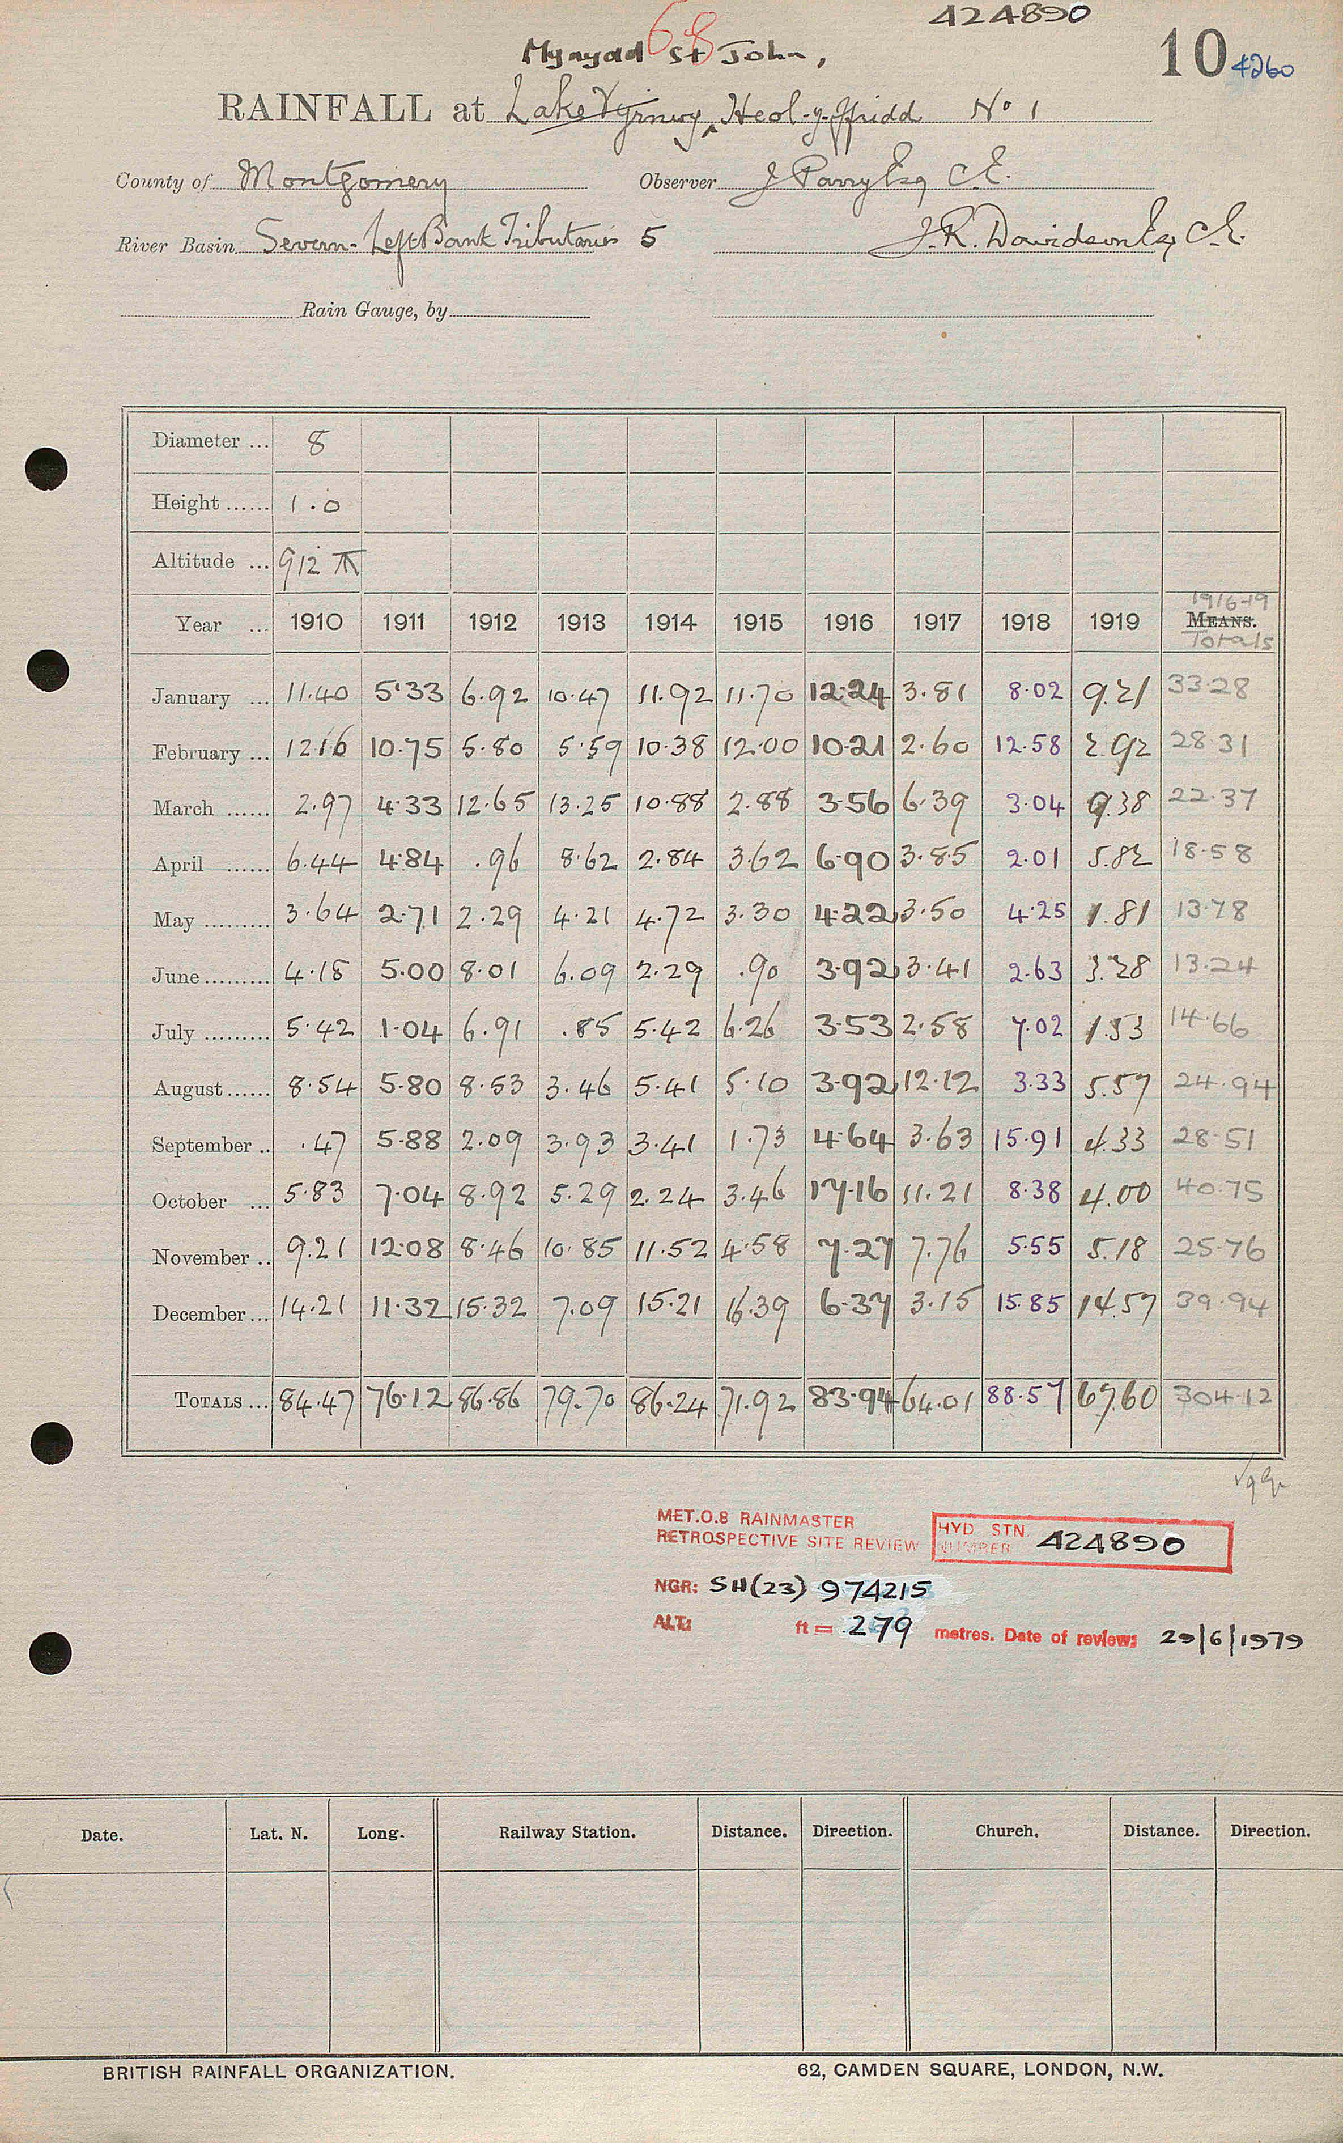 424890
68
Mynydd St John,
10 4260
RAINFALL at Lake Vyrnwy, Heol-y-ffridd No 1
County of Montgomery Observer J Parry Esq C.E.
River Basin Severn - Left Bank Tributaries 5 J.R. Davidson Esq C.E.
Rain Gauge, by
Diameter ... 8
Height ...... 1.0
Altitude ... 912
1916-19
Year ... 1910 1911 1912 1913 1914 1915 1916 1917 1918 1919 MEANS.
Totals
January ... 11.40 5.33 6.92 10.47 11.92 11.70 12.24 3.81 8.02 9.21 33.28
February ... 12.16 10.75 5.80 5.59 10.38 12.00 10.21 2.60 12.58 2.92 28.31
March ...... 2.97 4.33 12.65 13.25 10.88 2.88 3.56 6.39 3.04 9.38 22.37
April ...... 6.44 4.84 .96 8.62 2.84 3.62 6.90 3.85 2.01 5.82 18.58
May ......... 3.64 2.71 2.29 4.21 4.72 3.30 4.22 3.50 4.25 1.81 13.78
June ......... 4.18 5.00 8.01 6.09 2.29 .90 3.92 3.41 2.63 3.28 13.24
July ......... 5.42 1.04 6.91 .85 5.42 6.26 3.53 2.58 7.02 1.53 14.66
August ...... 8.54 5.80 8.53 3.46 5.41 5.10 3.92 12.12 3.33 5.57 24.94
September .. .47 5.88 2.09 3.93 3.41 1.73 4.64 3.63 15.91 4.33 28.51
October ... 5.83 7.04 8.92 5.29 2.24 3.46 17.16 11.21 8.38 4.00 40.75
November .. 9.21 12.08 8.46 10.85 11.52 4.58 7.27 7.76 5.55 5.18 25.76
December ... 14.21 11.32 15.32 7.09 15.21 16.39 6.37 3.15 15.85 14.57 39.94
TOTALS ... 84.47 76.12 86.86 79.70 86.24 71.92 83.94 64.01 88.57 67.60 304.12
MET.O.8 RAINMASTER
RETROSPECTIVE SITE REVIEW
HYD STN NUMBER 424890
NGR: SH(23) 974215
ALT: ft = 279 metres. Date of review: 29/6/1979
Date. Lat. N. Long. Railway Station. Distance. Direction. Church. Distance. Direction.
BRITISH RAINFALL ORGANIZATION. 62, CAMDEN SQUARE, LONDON, N.W.